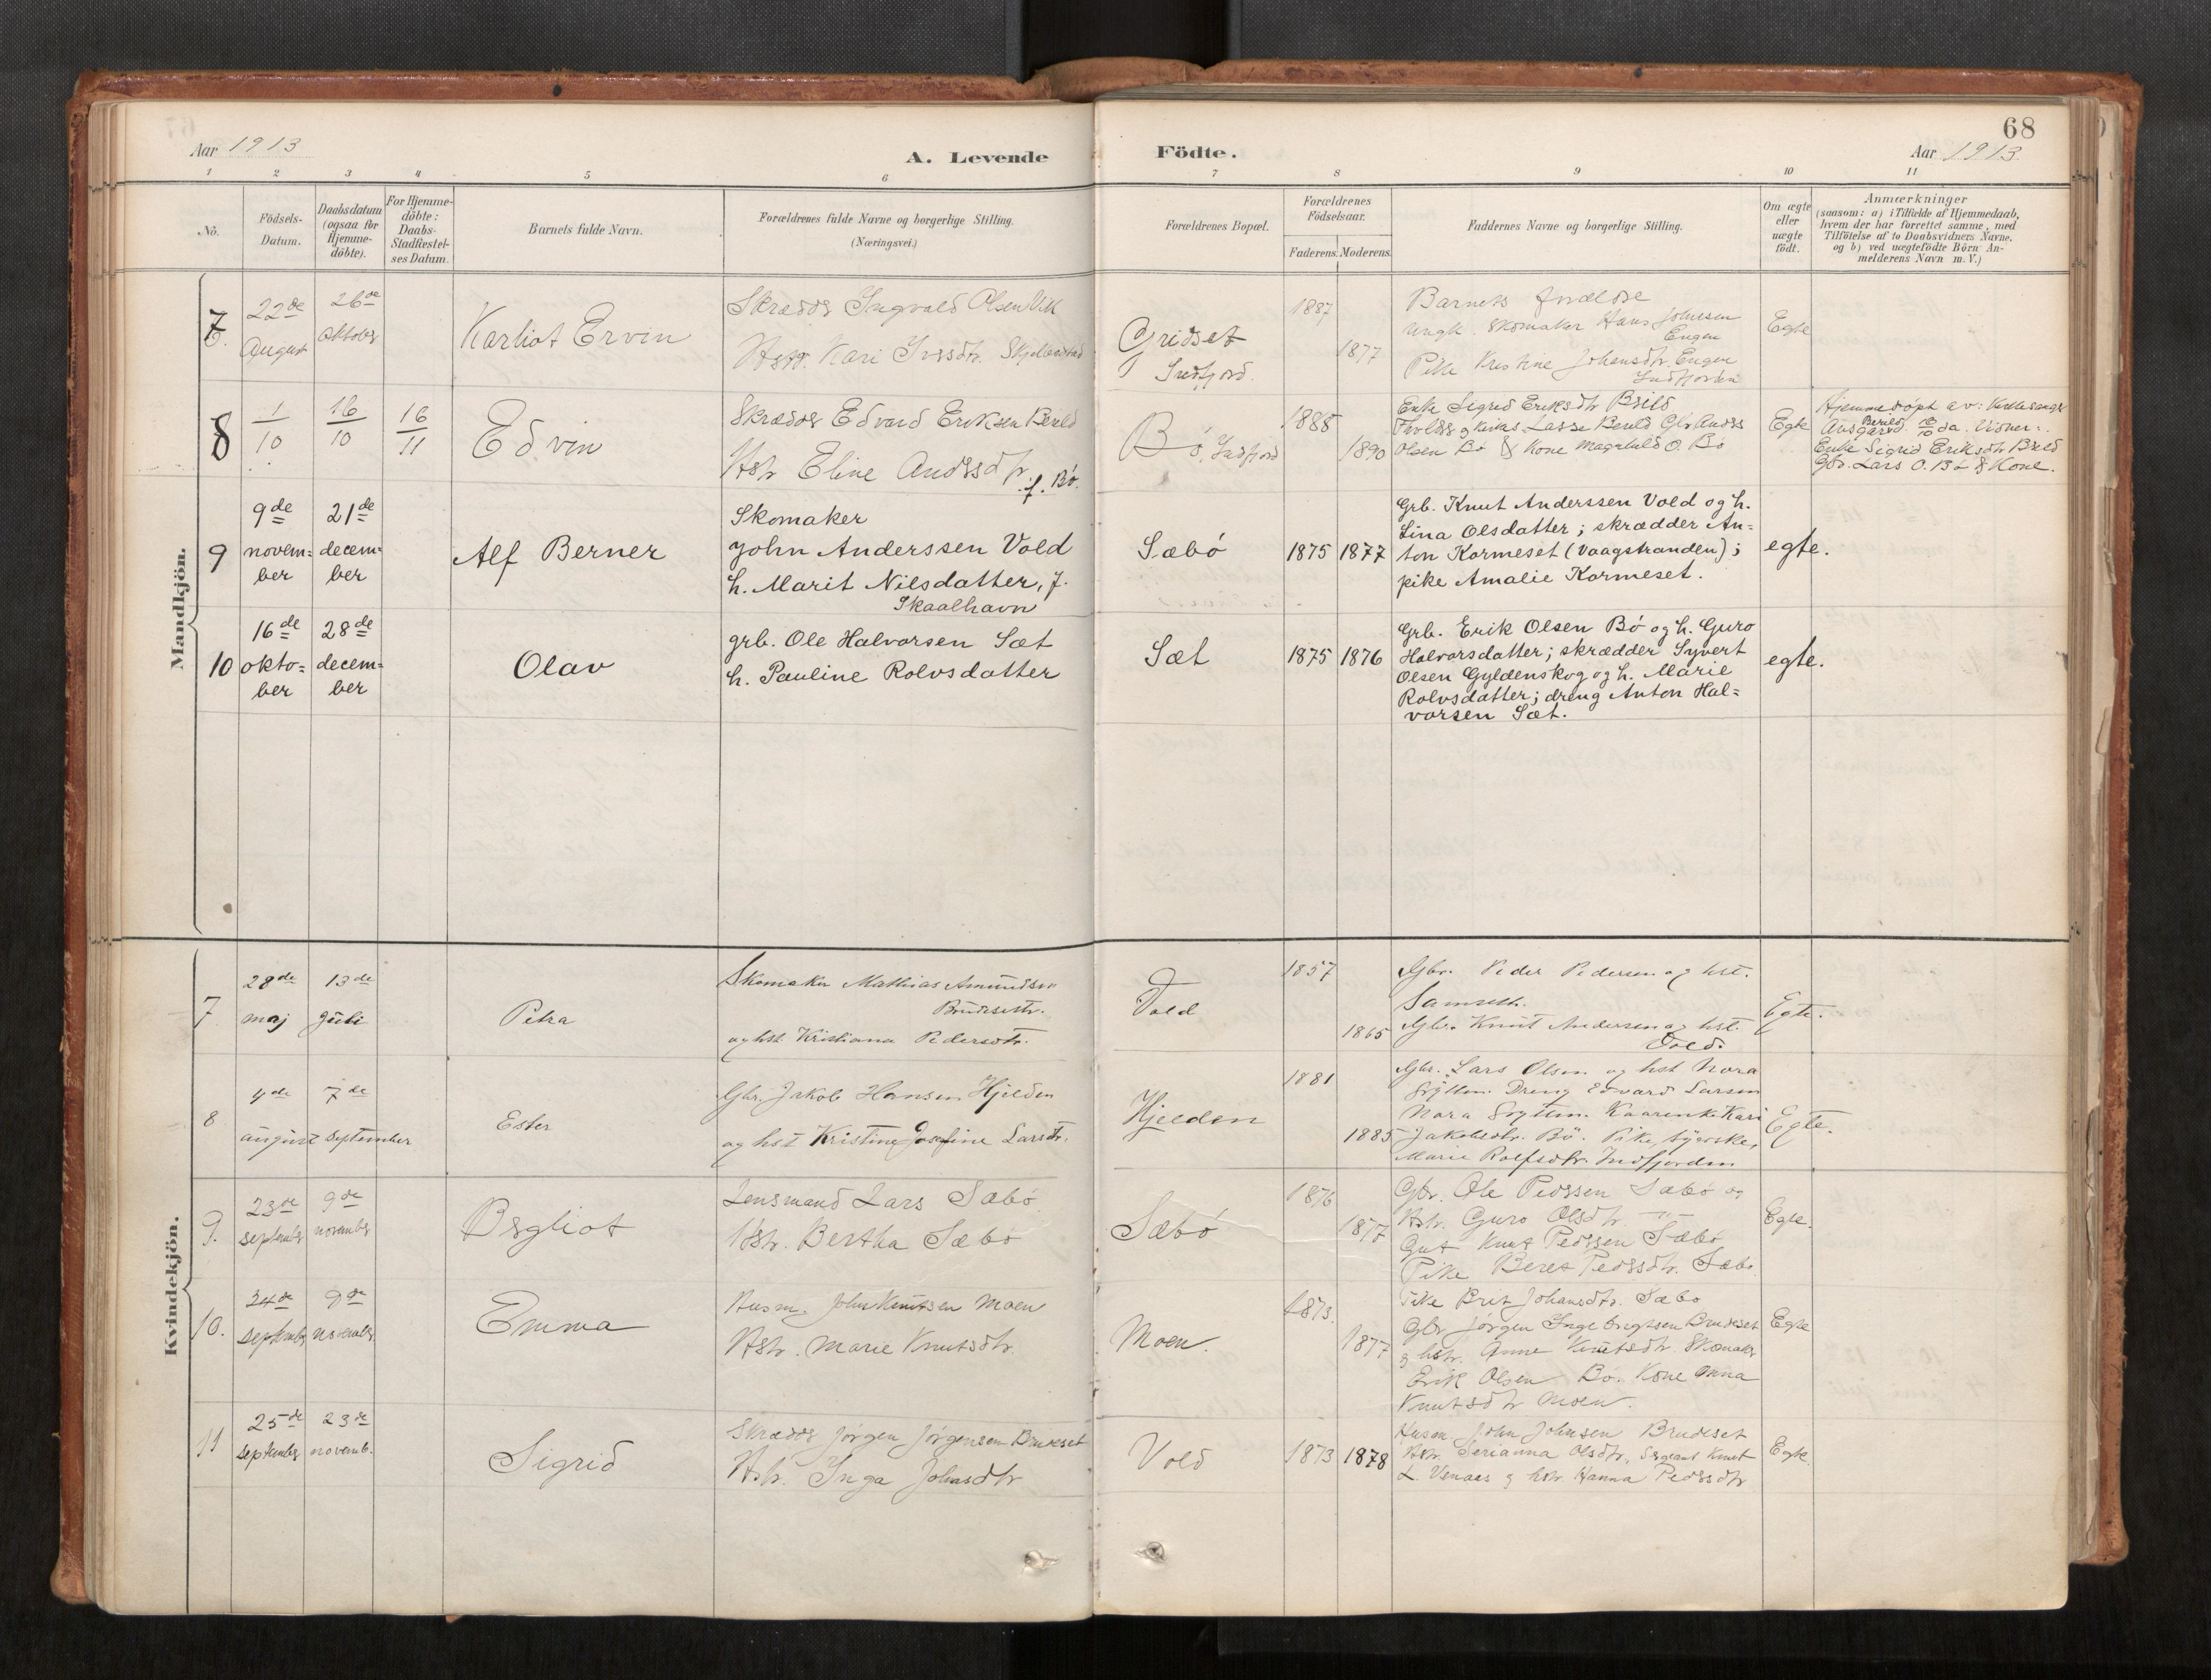 68
Aar 1913
A. Levende
Födte.
Aar 1913.
1 2 3 4 5 6 7 8 9 10 11
No.
Födsels-
Datum.
Daabsdatum
(ogsaa for
Hjemme-
döbte).
For Hjemme-
döbte:
Daabs-
Stadfæstel-
ses Datum.
Barnets fulde Navn.
Forældrenes fulde Navne og borgerlige Stilling.
(Næringsvei.)
Forældrenes Bopæl.
Forældrenes
Födselsaar.
Faderens. Moderens.
Faddernes Navne og borgerlige Stilling.
Om ægte
eller
uægte
födt.
Anmærkninger
(saasom: a) i Tilfælde af Hjemmedaab,
hvem der har forrettet samme, med
Tilföielse af to Daabsvidners Navne,
og b) ved uægtefödte Börn An-
melderens Navn m. V.)
Mandkjön.
7.
22de
August
26de
Oktober
Karliot Ervin
Skrædder Ingvald Olsen Vik
Hstr. Kari Iversdtr.
Gridset
Indfjord.
1887
1877
Barnets forældre
ungk. Skomaker Hans Johnsen
Engen
Pike Kristine Johansdtr. Engen
Indfjorden
Egte
8
1/10
16/10
16/11
Edvin
Skrædder Edvard Eriksen Berild
Hstr Eline Andersdtr
f. Bö.
Bö, Indfjord
1888
1890
Enke Sigrid Eriksdtr Berild
Lasse Berild Gbr Anders
Olsen Bö & Kone Magnhild O. Bö
Egte
Hjemmedöpt av: Kirkesanger
Berild
Enke Sigrid Eriksdtr Berild
Gbr. Lars O. Bö & Kone.
9
9de
novem=
ber
21de
decem=
ber
Alf Berner
Skomaker
John Anderssen Vold
h. Marit Nilsdatter, f.
Skaalhavn
Sæbö
1875 1877
Grb. Knut Anderssen Vold og h.
Lina Olsdatter; skrædder An=
ton Kormeset (Vaagstranden);
pike Amalie Kormeset.
egte.
10
16de
okto=
ber
28de
decem=
ber
Olav
grb. Ole Halvorsen Sæt
h. Pauline Rolvsdatter
Sæt
1875 1876
Grb. Erik Olsen Bö og h. Guro
Halvorsdatter; skrædder Syvert
Olsen Gyldenskog og h. Marie
Rolvsdatter; dreng Anton Hal=
vorsen Sæt.
egte.
Kvindekjön.
7
28de
maj
13de
Juli
Petra
Skomaker Mathias Amundsen
og hst Kristiana Pedersdtr.
Vold
1857
1865
Gbr. Peder Pedersen og hst.
Gbr. Knut Andersen og hst.
Vold.
Egte.
8
4de
august
7de
september
Ester
Gbr. Jakob Hansen Hjelden
og hst Kristine Josefine Larsdtr.
Hjelden
1881
1885
Gbr. Lars Olsen og hst Nora
Gryttin. Dreng Edvard Larsen
Nora Gryttin. Kaarenke Kari
Jakobsdtr. Bö. Pike, syerske,
Marie Rolfsdtr. Indfjorden
Egte.
9.
23de
septembr
9de
novembr
Bergliot
Lensmand Lars Sæbö
Hstr. Bertha Sæbö
Sæbö
1876
1877
Gbr. Ole Pedersen Sæbö og
Hstr. Guro Olsdtr. — " —
Gut Knut Pedersen Sæbö
Pike Beret Pedersdtr. Sæbö
Egte.
10.
24de
septembr
9de
novembr
Emma
Husm. John Knutsen Moen
Hstr. Marie Knutsdtr.
Moen.
1873.
1877
Pike Brit Johansdtr. Sæbö
Gbr Jörgen Ingebrigtsen Brudeset
& hstr. Anne Knutsdtr. Skomaker
Erik Olsen Bö. Kone Anna
Knutsdtr Moen.
Egte
11
25de
septembr
23de
novemb.
Sigrid
Skrædder Jörgen Jörgensen Brudeset
Hstr. Inga Johnsdtr
Vold
1873 1878
Husm John Johnsen Brudeset
Hstr. Serianna Olsdtr. Sergeant Knut
L. Venaas & hstr. Hanna Pedersdtr
Egte.